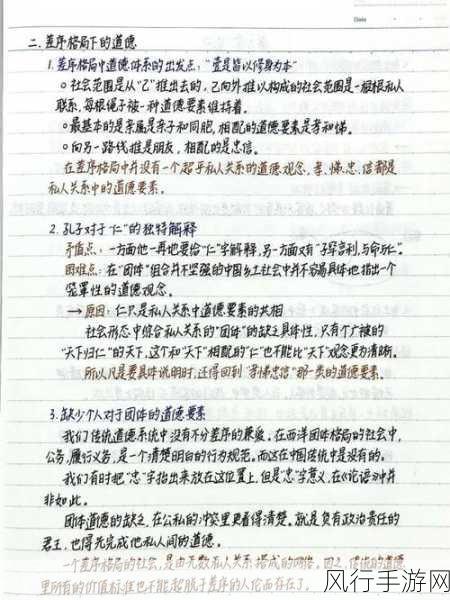 Date
二.差序格局下的道德
1.差序格局中道德体系的出发点:"壹是皆以修身为本"
○社会范围是从"己"推出去的,己向外推以构成的社会范围是一根根私人
联系,每根绳子被一种道德要素维持着。
○最基本的是亲属是亲子和同胞,相配的道德要素是孝和悌。
○向另一路线推是朋友,相配的是忠信。
在差序格局中并没有一个超乎私人关系的道德观念,孝、悌、忠、信都是
私人关系中的道德要素。
2.孔子对于"仁"的独特解释
矛盾点:一方面他一再地要给"仁"字解释,另一方面又有"子罕言利,与命与仁"。
困难点:在"团体"组合并不坚强的中国乡土社会中并不容易具体地指出一个
笼罩性的道德观念。
→原因:仁只是私人关系中道德要素的共相
社会形态中综合私人关系的"团体"的缺乏具体性,只有个广被的
"天下归仁"的天下,这个和"天下"相配的"仁"也不能比"天下"观念更为清晰。
所以凡是要具体说明时,还得回到"孝悌忠信"那一类的道德要素。
3.缺少个人对于团体的道德要素
我们传统道德系统中没有不分差序的兼爱,在西洋团体格局的社会中,
公务,履行义务,是一个清楚明白的行为规范。而这在中国传统中是没有的。
我们有时把"忠"字抬出来放在这位置上,但是"忠"字意义,在《论语》中并
非如此。
团体道德的缺乏,在公私的冲突里更看得清楚。就是负有政治责任的
君王,也得先完成他私人间的道德。
一个差序格局的社会,是由无数私人关系搭成的网络。因之,传统的道德
里所有的价值标准也不能超脱于差序的人伦而存在了。
风行手游网